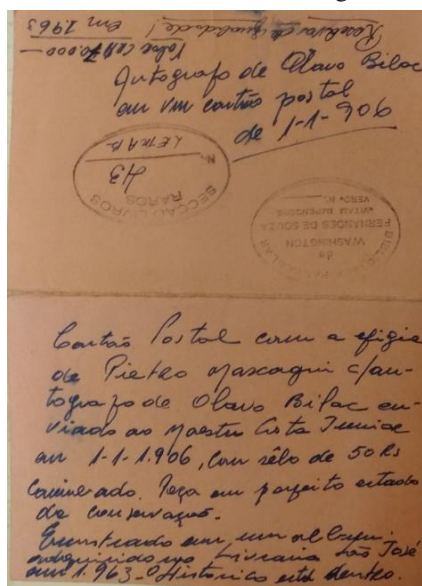 Raridade de qualidade!
Valor CR$ 70.000 — em 1963
Autografo de Olavo Bilac
em um cartão postal
de 1-1-906
SECÇÃO LIVROS
RAROS
43
Nº.
LETRA B.
BIBLIOTHECA PARTICULAR
de
WASHINGTON
FERNANDES DE SOUZA
VITAM IMPENDERE
VERO
Cartão Postal com a efigie
de Pietro Mascagni c/au-
tografo de Olavo Bilac en-
viado ao Maestro Costa Junior
em 1-1-1.906, com sêlo de 50 Rs
carimbado. Peça em perfeito estado
de conservação.
Encontrado em um album
adquirido na Livraria São José
em 1.963. O Historico está dentro.